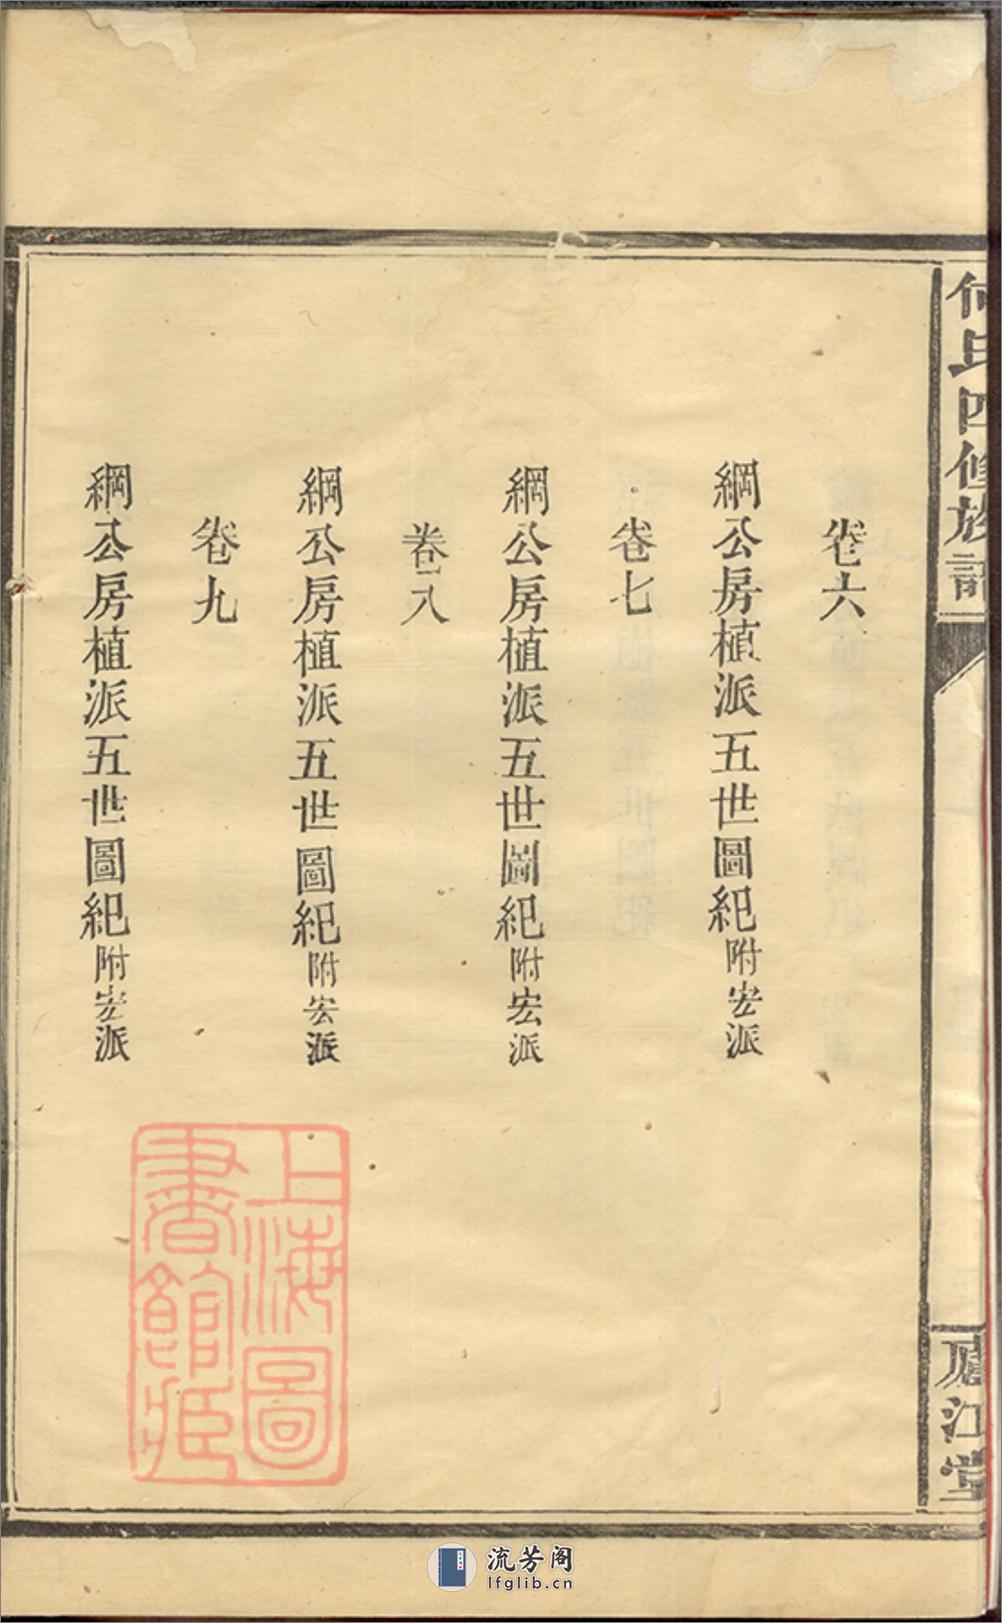 何氏四修族譜
廬江堂
卷六
綱公房植派五世圖紀附宏派
卷七
綱公房植派五世圖紀附宏派
卷八
綱公房植派五世圖紀附宏派
卷九
綱公房植派五世圖紀附宏派
上海圖
書館藏
流芳阁
lfglib.cn